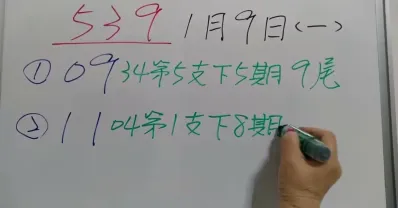 539 1月9日(一)
① 09 34第5支下5期9尾
② 11 04第1支下8期